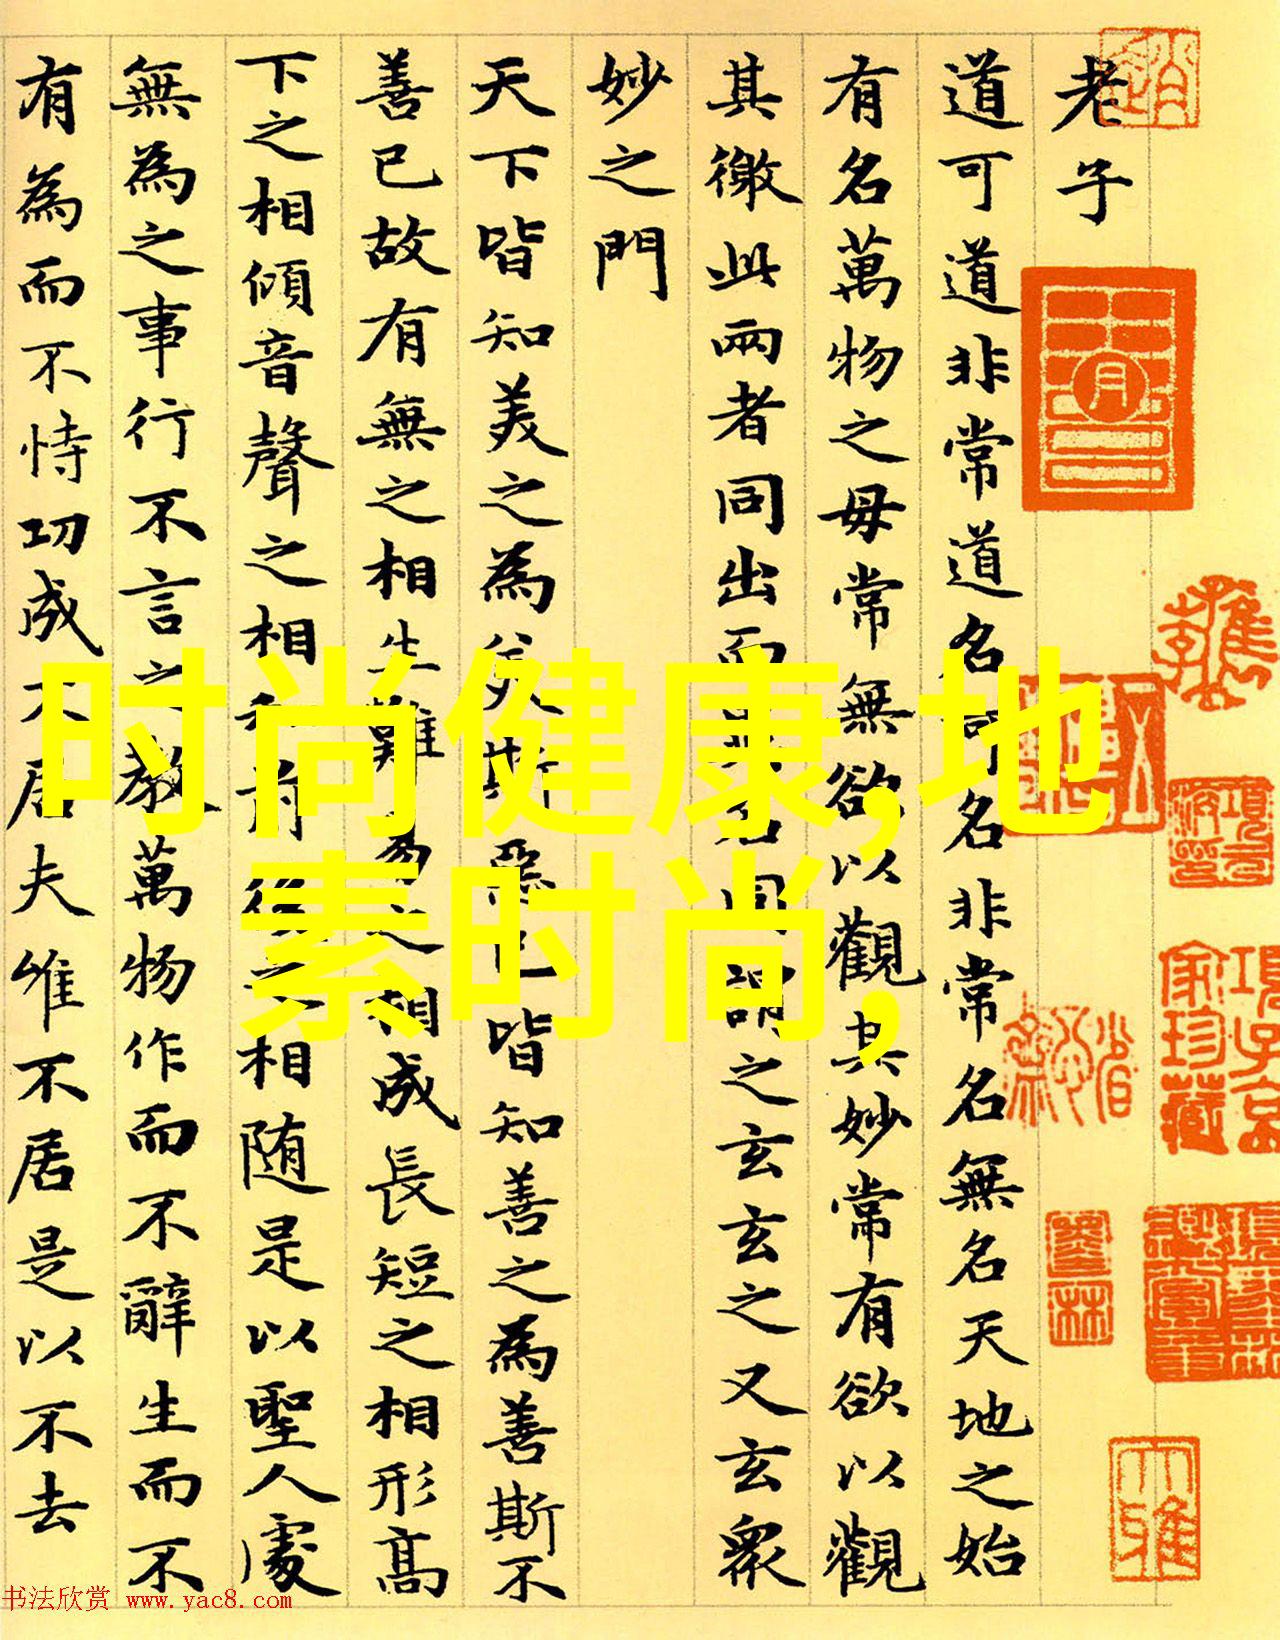 老子
道可道非常道名可名非常名無名天地之始
有名萬物之毋常無欲以觀其妙常有欲以觀
其徼此兩者同出而異名同謂之玄玄之又玄衆
妙之門
天下皆知美之為美斯惡已皆知善之為善斯不
善已故有無之相生難易之相成長短之相形高
下之相傾音聲之相和前後之相随是以聖人處
無為之事行不言之教萬物作而不辭生而不
有為而不恃功成不居夫唯不居是以不去
时尚健康,地
素时尚,
項子京
家珍藏
书法欣赏 www.yac8.com